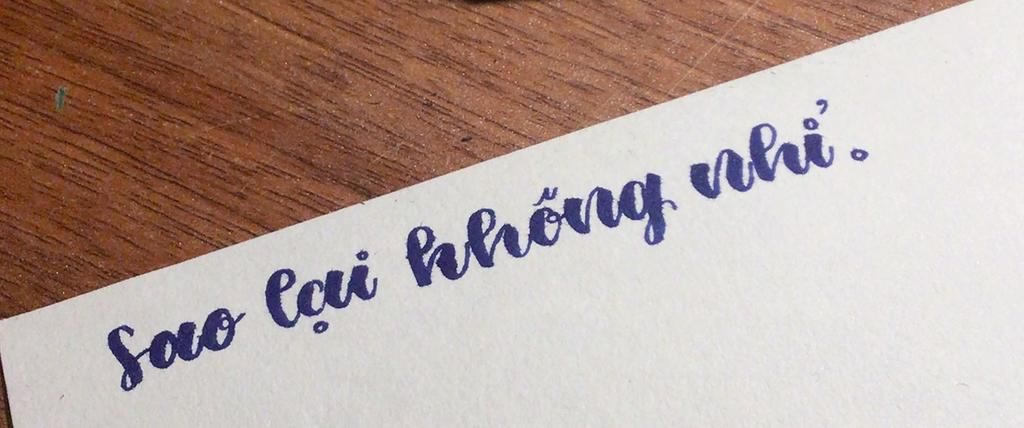 Sao lại không nhỉ.